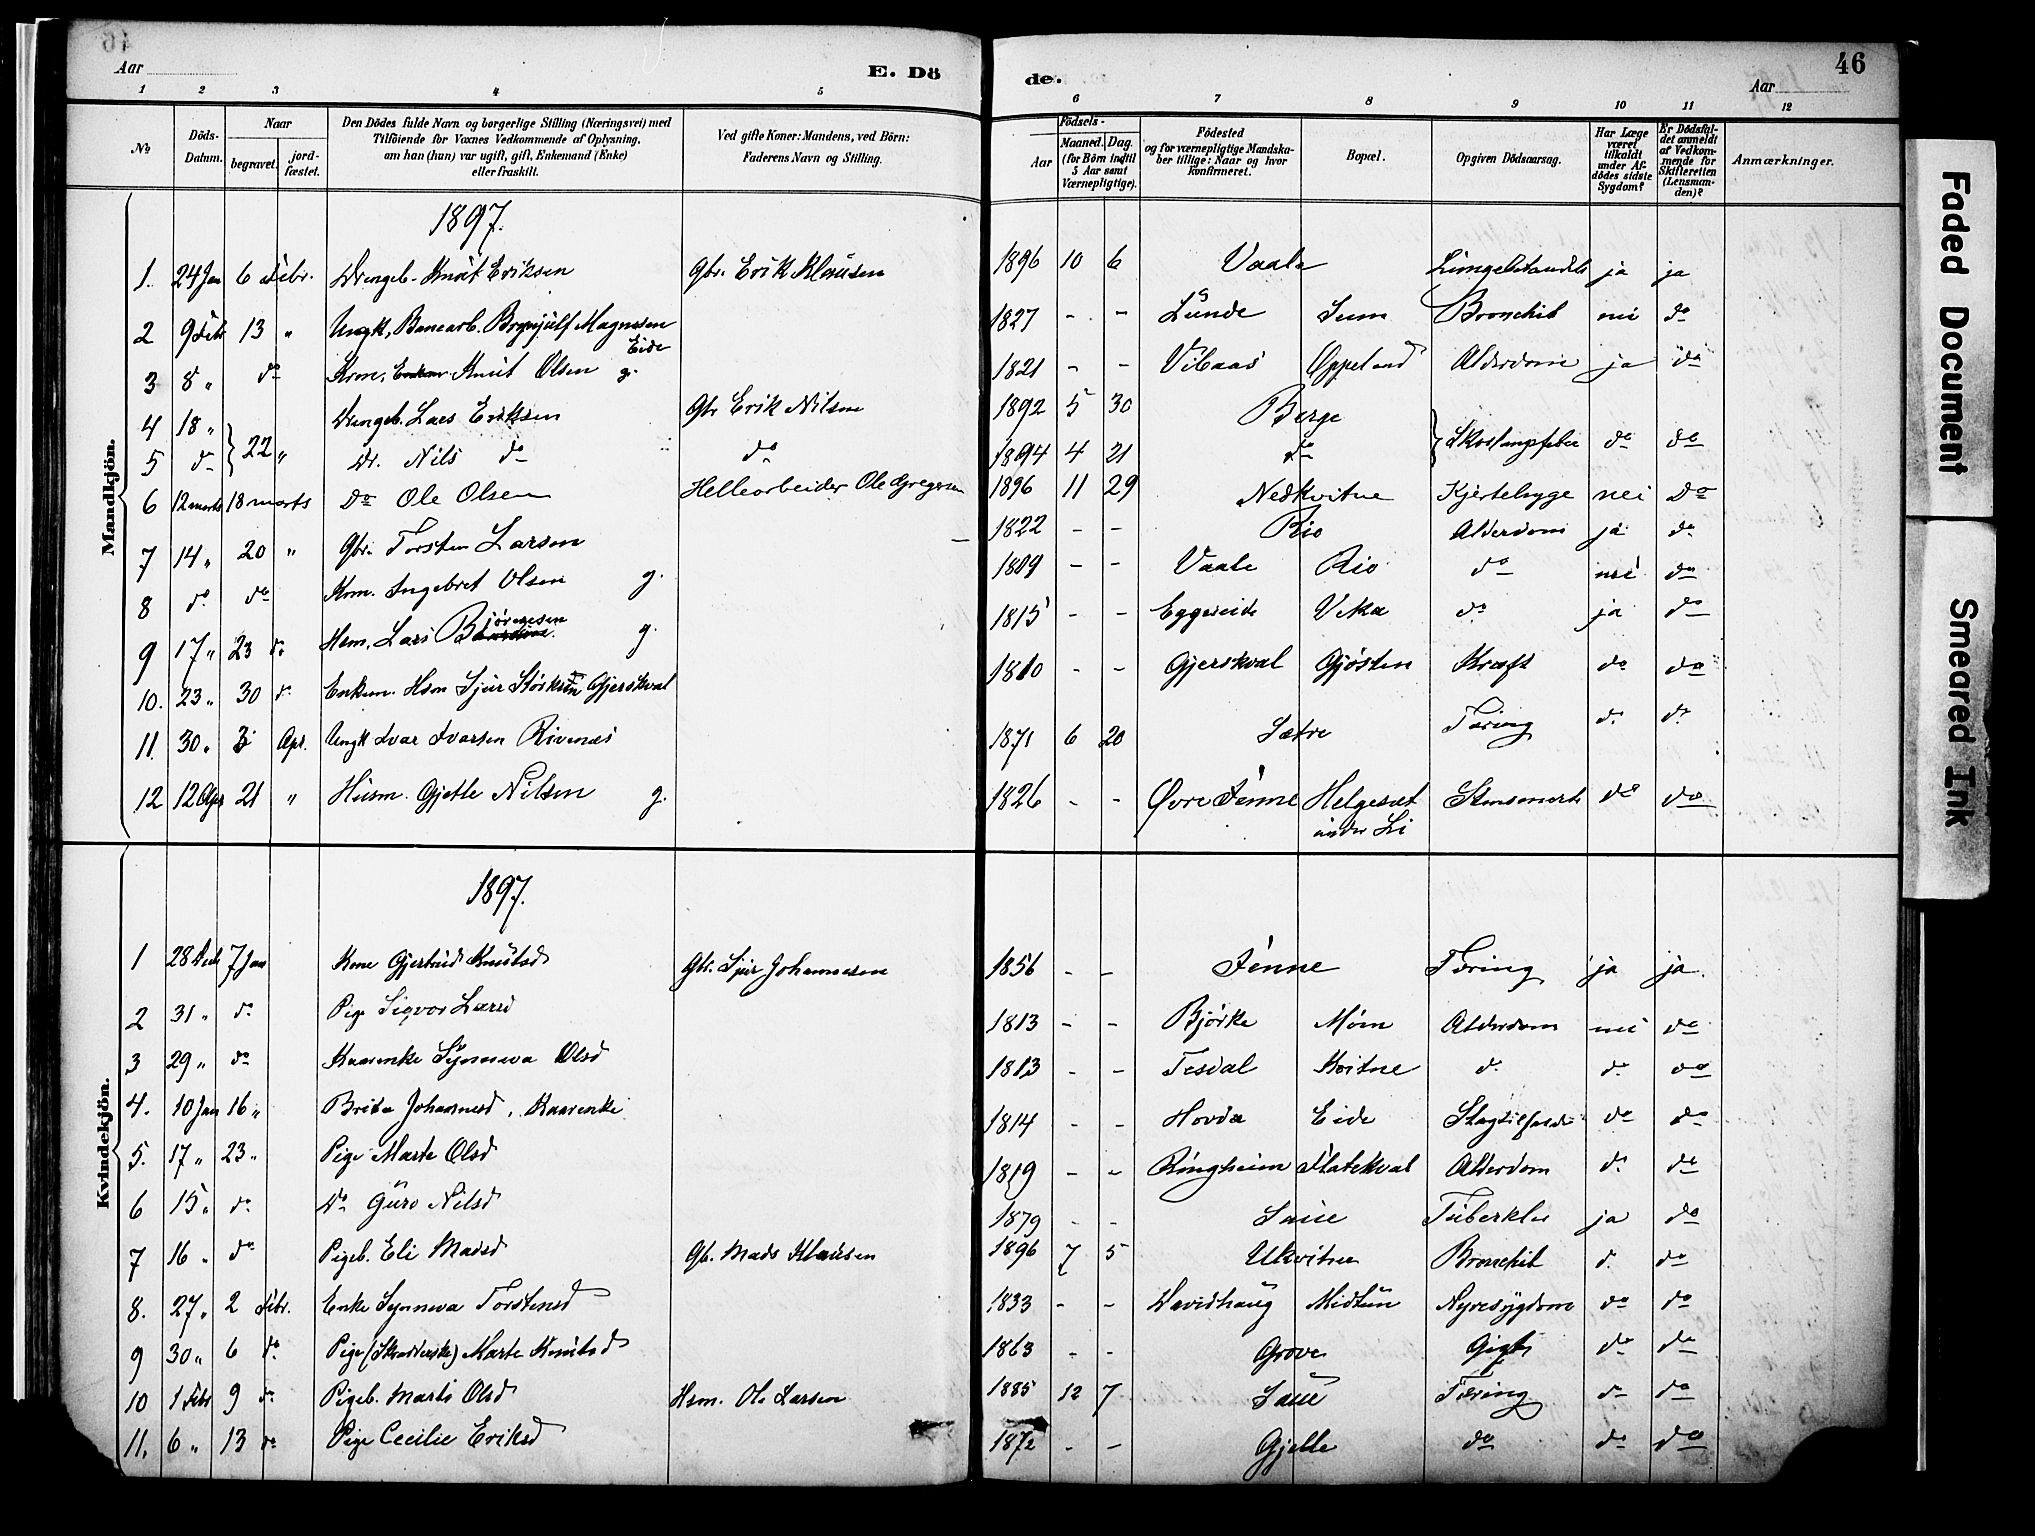 46
Aar
E. Dö
de.
46
Aar
1 2 3 4 5 6 7 8 9 10 11 12
No
Döds-Datum.
Naar
begravet.
jord-fæstet.
Den Dödes fulde Navn og borgerlige Stilling (Næringsvei) med
Tilföiende for Voxnes Vedkommende af Oplysning,
om han (hun) var ugift, gift, Enkemand (Enke)
eller fraskilt.
Ved gifte Koner: Mandens, ved Börn:
Faderens Navn og Stilling.
Födsels-
Aar
Maaned. Dag.
(for Börn indtil
5 Aar samt
Værnepligtige).
Födested
og for værnepligtige Mandska-
ber tillige: Naar og hvor
konfirmeret.
Bopæl.
Opgiven Dödsaarsag.
Har Læge
været
tilkaldt
under Af-
dödes sidste
Sygdom?
Er Dödsfal-
det anmeldt
af Vedkom-
mende for
Skifteretten
(Lensman-
den)?
Anmærkninger.
Mandkjön.
1897.
1. 24 Jan 6 Febr. Drengeb. Knut Eriksen Gbr. Erik Klausen 1896 10 6 Vaale ja ja
2 9 Feb 13 " Ungk, Banearb. Brynjulf Magnesen Eide 1827 - - Lunde Seim Bronchit nei do
3 8 " do Krm. Knut Olsen g. 1821 - - Vibaas Oppeland Alderdom ja do
4 18 " Drengeb. Lars Eriksen Gbr Erik Nilsen 1892 5 30 Berge
5 do } 22 " Dr. Nils do do 1894 4 21 do } Skarlangsfeber do do
6 12 marts 18 marts Do Ole Olsen Hellearbeider Ole Gregersen 1896 11 29 Nedkvitne Kjertelsyge nei Do
7 14 " 20 " Gbr. Torsten Larsen - 1822 - - Rio Alderdom ja do
8 do do Krm. Ingebret Olsen g. 1809 - - Vaale Rio do nei do
9 17 " 23 do Hsm. Lars Bjørgesen g. 1815 - - Eggereide Veka do ja do
10. 23 " 30 do Enkem. Hsm Sjur Størksen Gjerskval 1810 - - Gjerskval Gjøsten Kræft do do
11. 30 " 3 Apr. Ungk Ivar Ivarsen Rivenæs 1871 6 20 Sætre Tæring do do
12 12 Apr 21 " Husm. Gjetle Nilsen g. 1826 - - Øvre Fenne Helgeset under Li do do
Kvindekjön.
1897.
1 28 Decb 7 Jan Kone Gjertrud Knutsd Gbr. Sjur Johannesen 1856 - - Fenne Tæring ja ja.
2 31 " do Pige Sigvor Larsd 1813 - - Bjørke Møen Alderdom nei do
3 29 " do Kaarenke Synneva Olsd 1813 - - Tesdal Kvitne do do do
4. 10 Jan 16 " Brita Johannesd, Kaarenke 1814 - - Hovda Eide Slagtilfælde do do
5. 17 " 23 " Pige Marte Olsd 1819 - - Ringheim Flatekval Alderdom do do
6 15 " do Do Guro Nilsd 1879 - - Saue Tuberkler ja do
7 16 " do Pigeb. Eli Madsd Gb. Mads Klausen 1896 7 5 Ukvitne Bronchit do do
8. 27 " 2 Febr. Enke Synneva Torstensd 1833 - - Davidhaug Midtun Nyresygdom do do
9 30 " 6 do Pige (Skredderske) Marte Knutsd 1863 - - Grove Gigt do do
10 1 Febr 9 do Pigeb. Marta Olsd Hsm. Ole Larsen 1885 12 7 Saue Tæring do do
11. 6 " 13 do Pige Cecilie Eriksd 1872 - - Gjelle do do do
Faded Document
Smeared Ink